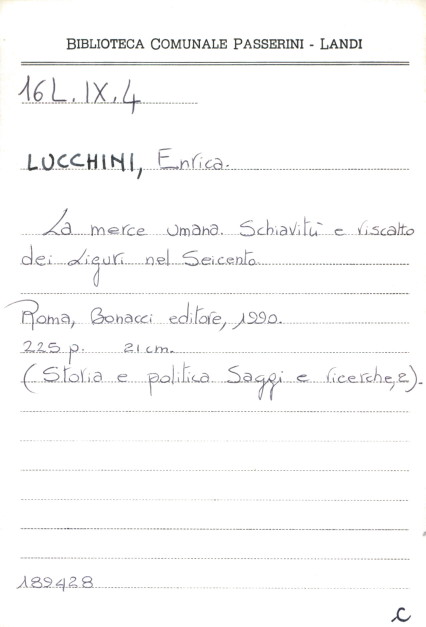 BIBLIOTECA COMUNALE PASSERINI - LANDI
16L.IX.4
LUCCHINI, Enrica.
La merce umana. Schiavitù e riscatto
dei Liguri nel Seicento
Roma, Bonacci editore, 1990.
225 p. 21 cm.
(Storia e politica Saggi e ricerche, 2).
189428
C